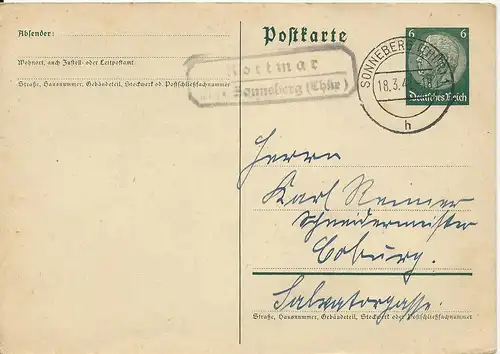 Absender:
Wohnort, auch Zustell- oder Leitpostamt
Straße, Hausnummer, Gebäudeteil, Stockwerk od. Postschließfachnummer
Postkarte
Rottmar
Sonneberg (Thür)
SONNEBERG (THÜR)
18.3.4
h
6 6
Deutsches Reich
Herrn
Karl Reimer
Schneidermeister
Coburg.
Salvatorgasse.
Straße, Hausnummer, Gebäudeteil, Stockwerk oder Postschließfachnummer